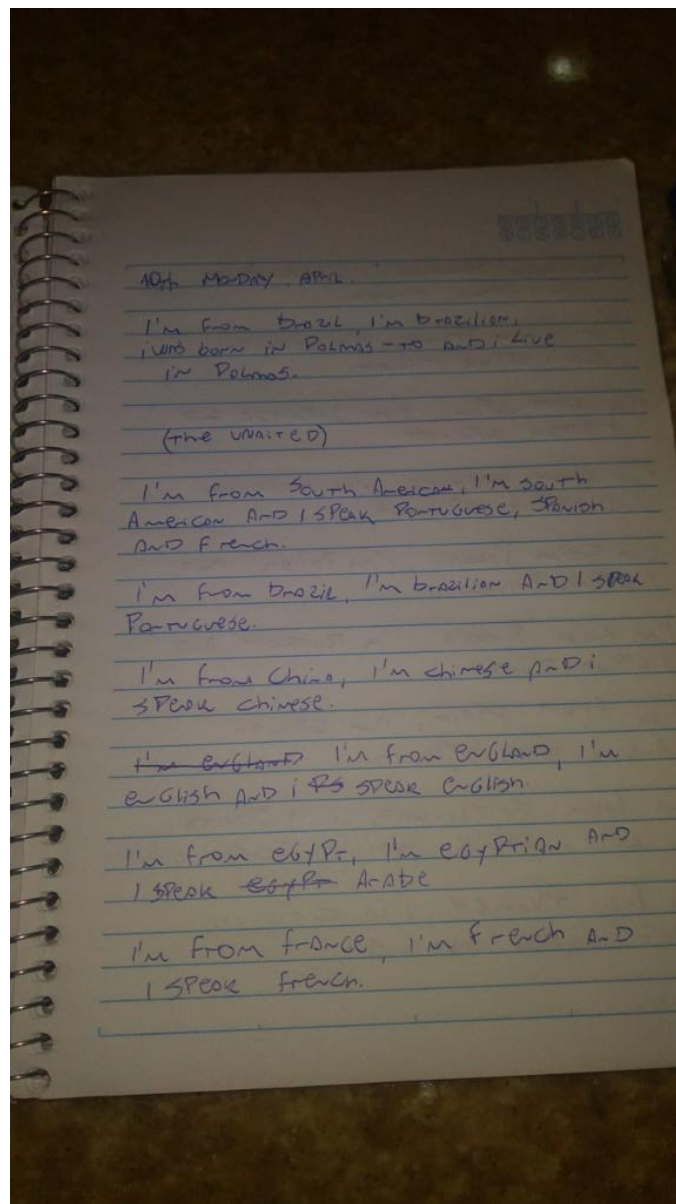 10th MONDAY APRIL.
I'm from brazil, I'm brazilian,
i was born in Palmas - TO AND i Live
in Palmas.
(the UNAITED)
I'm from South American, I'm South
American AND I SPeak Portuguese, SPanish
AND French.
I'm from brazil, I'm brazilian AND I SPeak
Portuguese.
I'm from China, I'm chinese AND i
SPeak chinese.
I'm englAND I'm from englAND, I'm
english AND i SPeak english.
I'm from egyPt, I'm egyPtian AND
I SPeak egyPt Arabe
I'm from france, I'm french AND
I SPeak french.